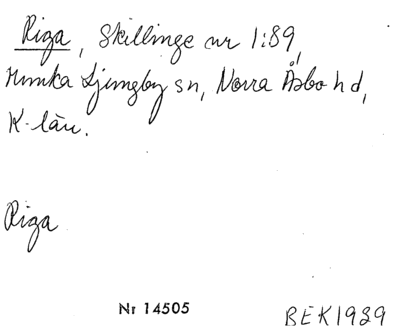 Riga, Skillinge nr 1:89,
Munka Ljungby sn, Norra Åsbo hd,
K-län.
Riga
Nr 14505
BEK1929